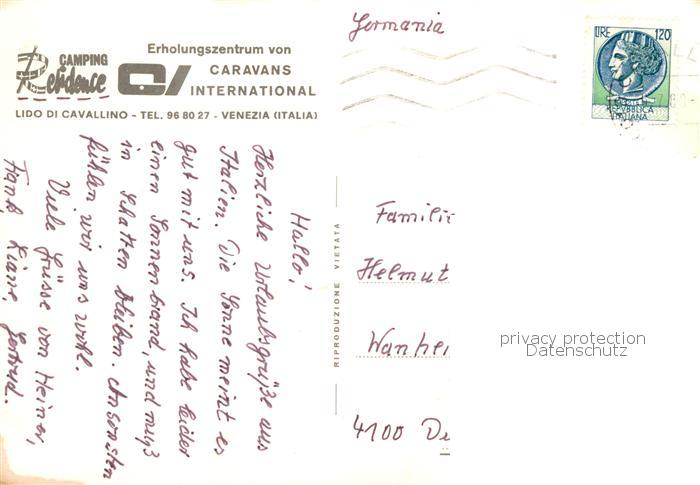 CAMPING
Residence
Erholungszentrum von
CARAVANS
INTERNATIONAL
LIDO DI CAVALLINO - TEL. 96 80 27 - VENEZIA (ITALIA)
Hallo!
Herzliche Urlaubsgrüße aus
Italien. Die Sonne meint es
gut mit uns. Ich habe leider
einen Sonnenbrand, und muß
im Schatten bleiben. Ansonsten
fühlen wir uns wohl.
Viele Grüsse von Heiner,
Gertrud.
RIPRODUZIONE VIETATA
Germania
LIRE 120
REPUBBLICA
ITALIANA
Familie
Helmut
Wanhei
4100 Du
privacy protection
Datenschutz